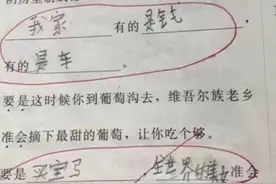 我家有的是钱，
有的是车。
要是这时候你到葡萄沟去，维吾尔族老乡
准会摘下最甜的葡萄，让你吃个够。
要是买宝马，全世界 准会